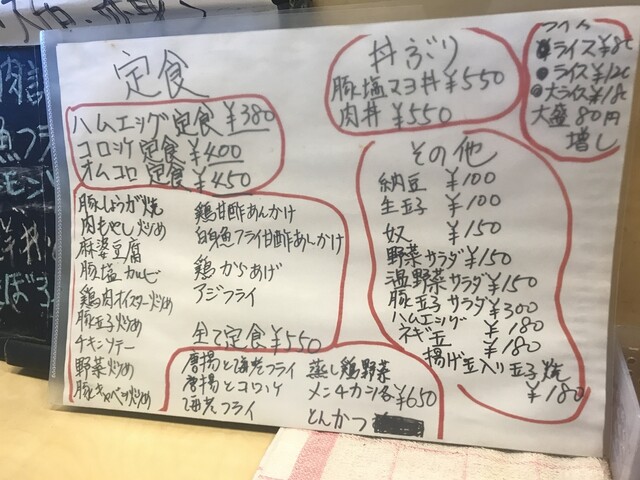 定食
ハムエッグ定食 ¥380
コロッケ定食 ¥400
オムコロ定食 ¥450
豚しょうが焼
肉もやし炒め
麻婆豆腐
豚塩カルビ
鶏肉オイスター炒め
豚玉子炒め
チキンソテー
野菜炒め
豚キャベツ炒め
鶏甘酢あんかけ
白身魚フライ甘酢あんかけ
鶏からあげ
アジフライ
全て定食¥550
唐揚と海老フライ
唐揚とコロッケ
海老フライ
蒸し鶏野菜
メンチカツ
とんかつ
¥650
丼ぶり
豚塩マヨ丼¥550
肉丼 ¥550
ライス
ライス
大ライス
大盛80円
増し
その他
納豆 ¥100
生玉子 ¥100
奴 ¥150
野菜サラダ¥150
温野菜サラダ¥150
豚玉子サラダ¥300
ハムエッグ ¥180
ネギ玉 ¥180
揚げ玉入り玉子焼
¥180